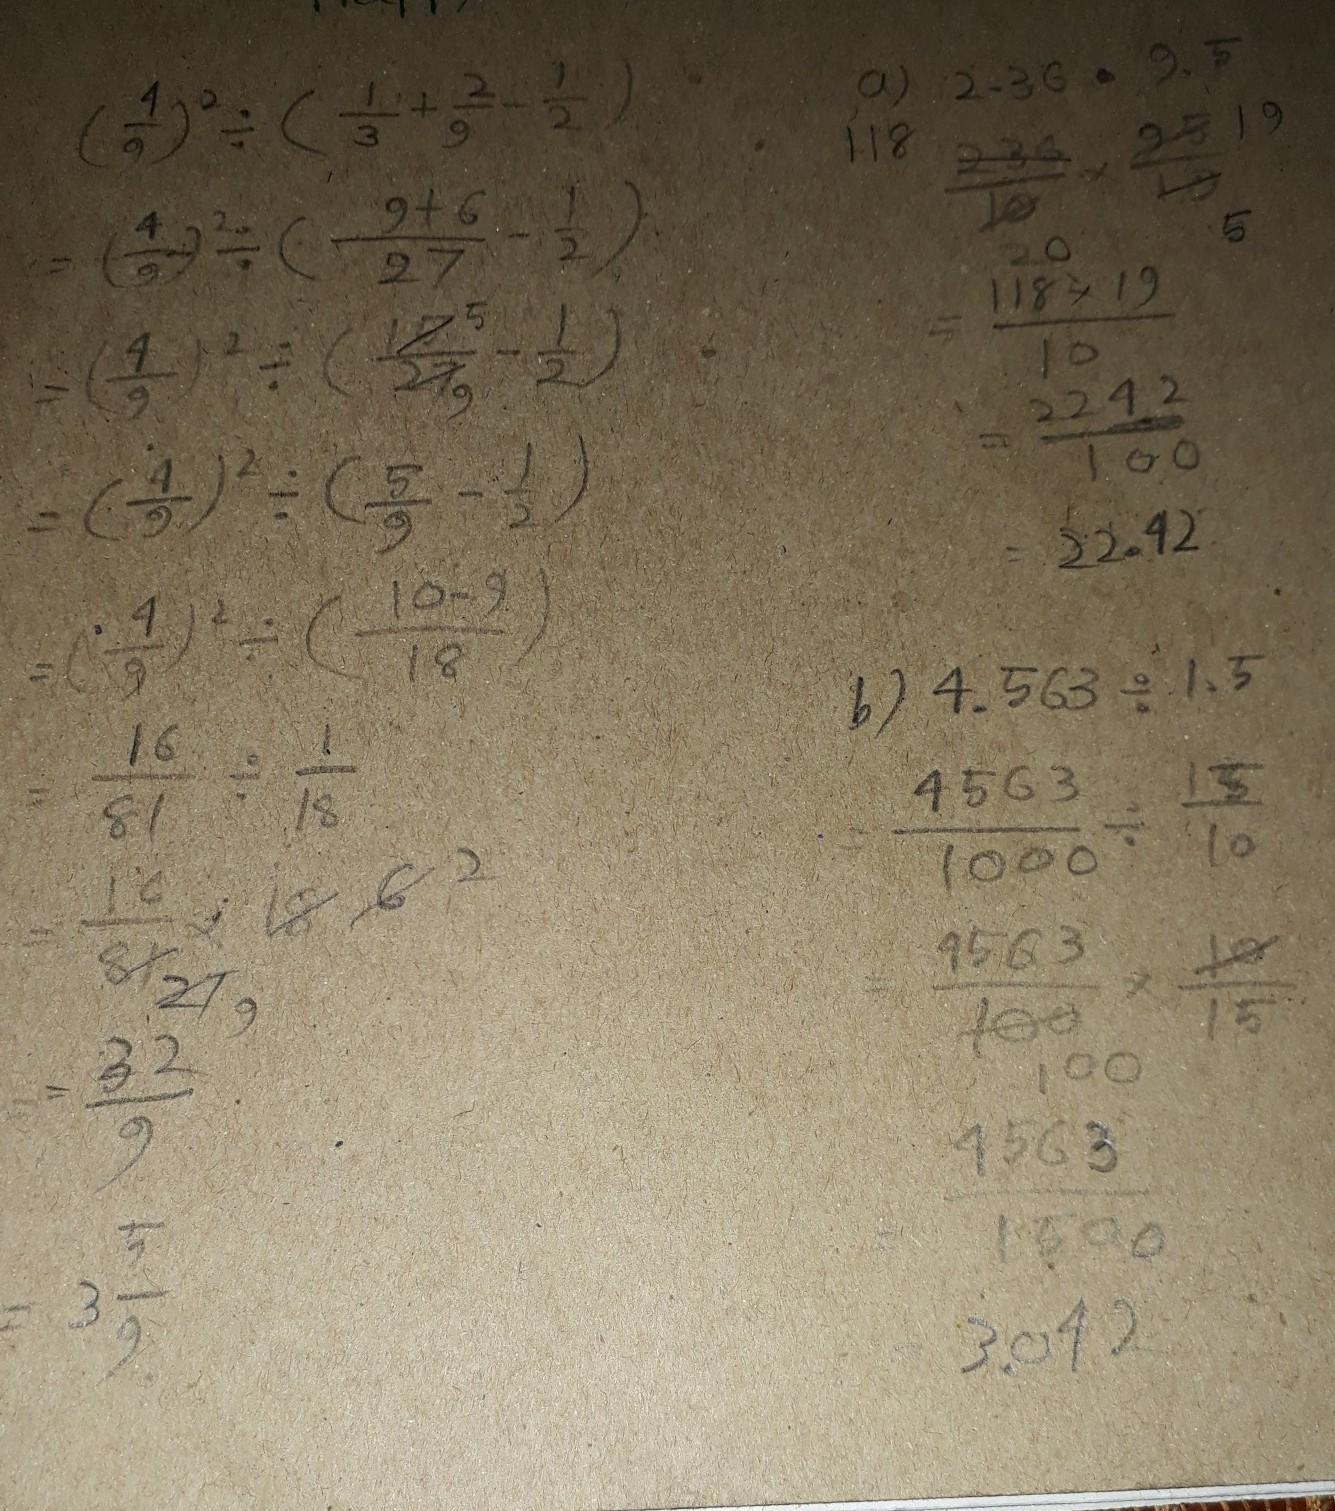 (4/9)² ÷ (1/3 + 2/9 - 1/2)
= (4/9)² ÷ (9+6/27 - 1/2)
= (4/9)² ÷ (15/27 5/9 - 1/2)
= (4/9)² ÷ (5/9 - 1/2)
= (4/9)² ÷ (10-9/18)
= 16/81 ÷ 1/18
= 16/81 27 9 × 18 6 2
= 32/9
= 3 5/9
a) 2.36 • 9.5
118 236/10 × 95/10 19
20 5
= 118×19/10
= 2242/100
= 22.42
b) 4.563 ÷ 1.5
= 4563/1000 ÷ 15/10
= 4563/100 × 10/15
100
= 4563/1500
= 3.042